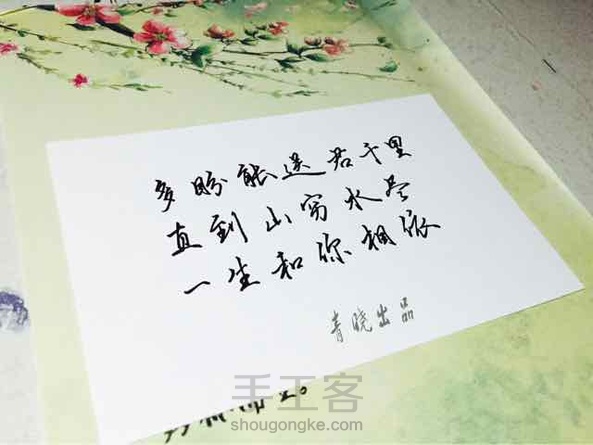 多盼能送君千里
直到山穷水尽
一生和你相依
青晓出品
手工客
shougongke.com